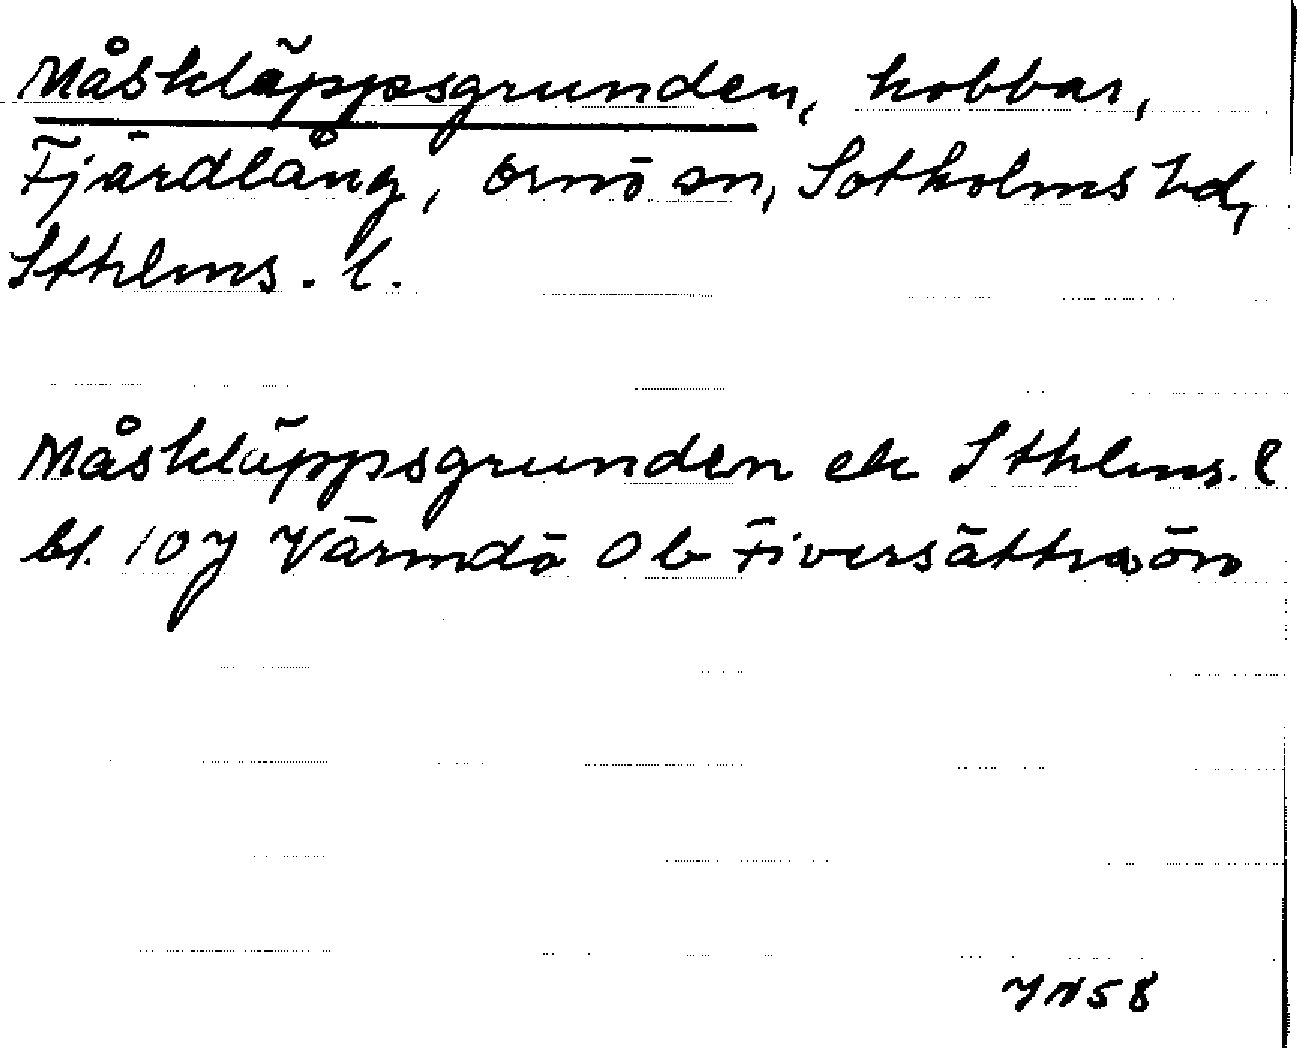 Måskläppsgrunden, kobbar,
Fjärdlång, Ornö sn, Sotholms hd,
Sthlms. l.
Måskläppsgrunden ek Sthlms. l
bl. 107 Värmdö Ob Fiversättraön
YN58